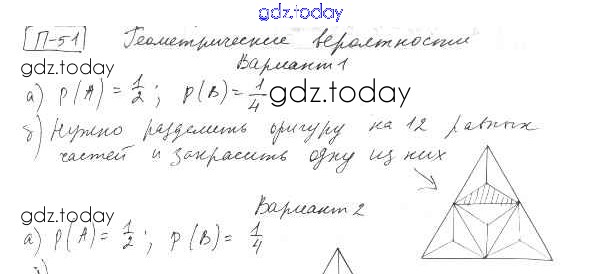 gdz.today
П-51 Геометрические вероятности
gdz.today Вариант 1
а) P(A) = 1/2; P(B) = 1/4 gdz.today
б) Нужно разделить фигуру на 12 равных
частей и закрасить одну из них
gdz.today Вариант 2
а) P(A) = 1/2; P(B) = 1/4
gdz.today